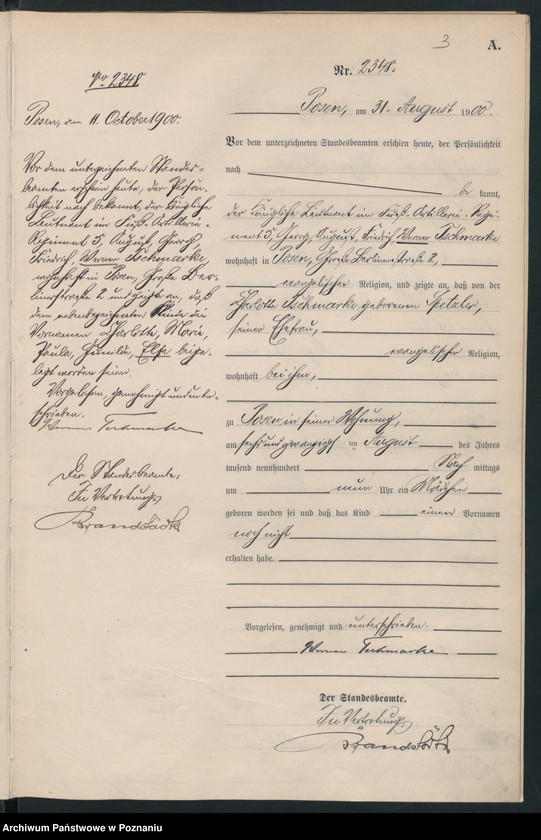 3
A.
Nr. 2348.
Posen, am 31. August 1900.
Vor dem unterzeichneten Standesbeamten erschien heute, der Persönlichkeit
nach
be kannt,
der Königliche Lieutenant im Fuß-Artillerie-Regi-
ment 5, Georg, August, Friedrich, Werner Tschmarke
wohnhaft in Posen, Große Berlinerstraße 2,
evangelischer Religion, und zeigte an, daß von der
Charlotte Tschmarke geborenen
seiner Ehefrau,
evangelischer Religion,
wohnhaft bei ihm,
zu Posen in seiner Wohnung,
am sechsundzwanzigsten August des Jahres
tausend neunhundert Nach mittags
um neun Uhr ein Mädchen
geboren worden sei und daß das Kind einen Vornamen
noch nicht
erhalten habe.
Vorgelesen, genehmigt und unterschrieben.
Werner Tschmarke
Der Standesbeamte.
In Vertretung
Brandstädter
No 2348
Posen, am 11. October 1900.
Vor dem unterzeichneten Standes-
beamten erschien heute, der Persön-
lichkeit nach bekannt, der Königliche
Lieutenant im Fuß-Artillerie-
Regiment 5, August, Georg
Friedrich, Werner Tschmarke,
wohnhaft in Posen, Große Ber-
linerstraße 2 und zeigte an, daß
dem nebenbezeichneten Kinde die
Vornamen Charlotte, Marie,
Paula, Else beige-
legt worden seien.
Vorgelesen, genehmigt und unter-
schrieben.
Werner Tschmarke
Der Standesbeamte,
In Vertretung
Brandstädter
Archiwum Państwowe w Poznaniu